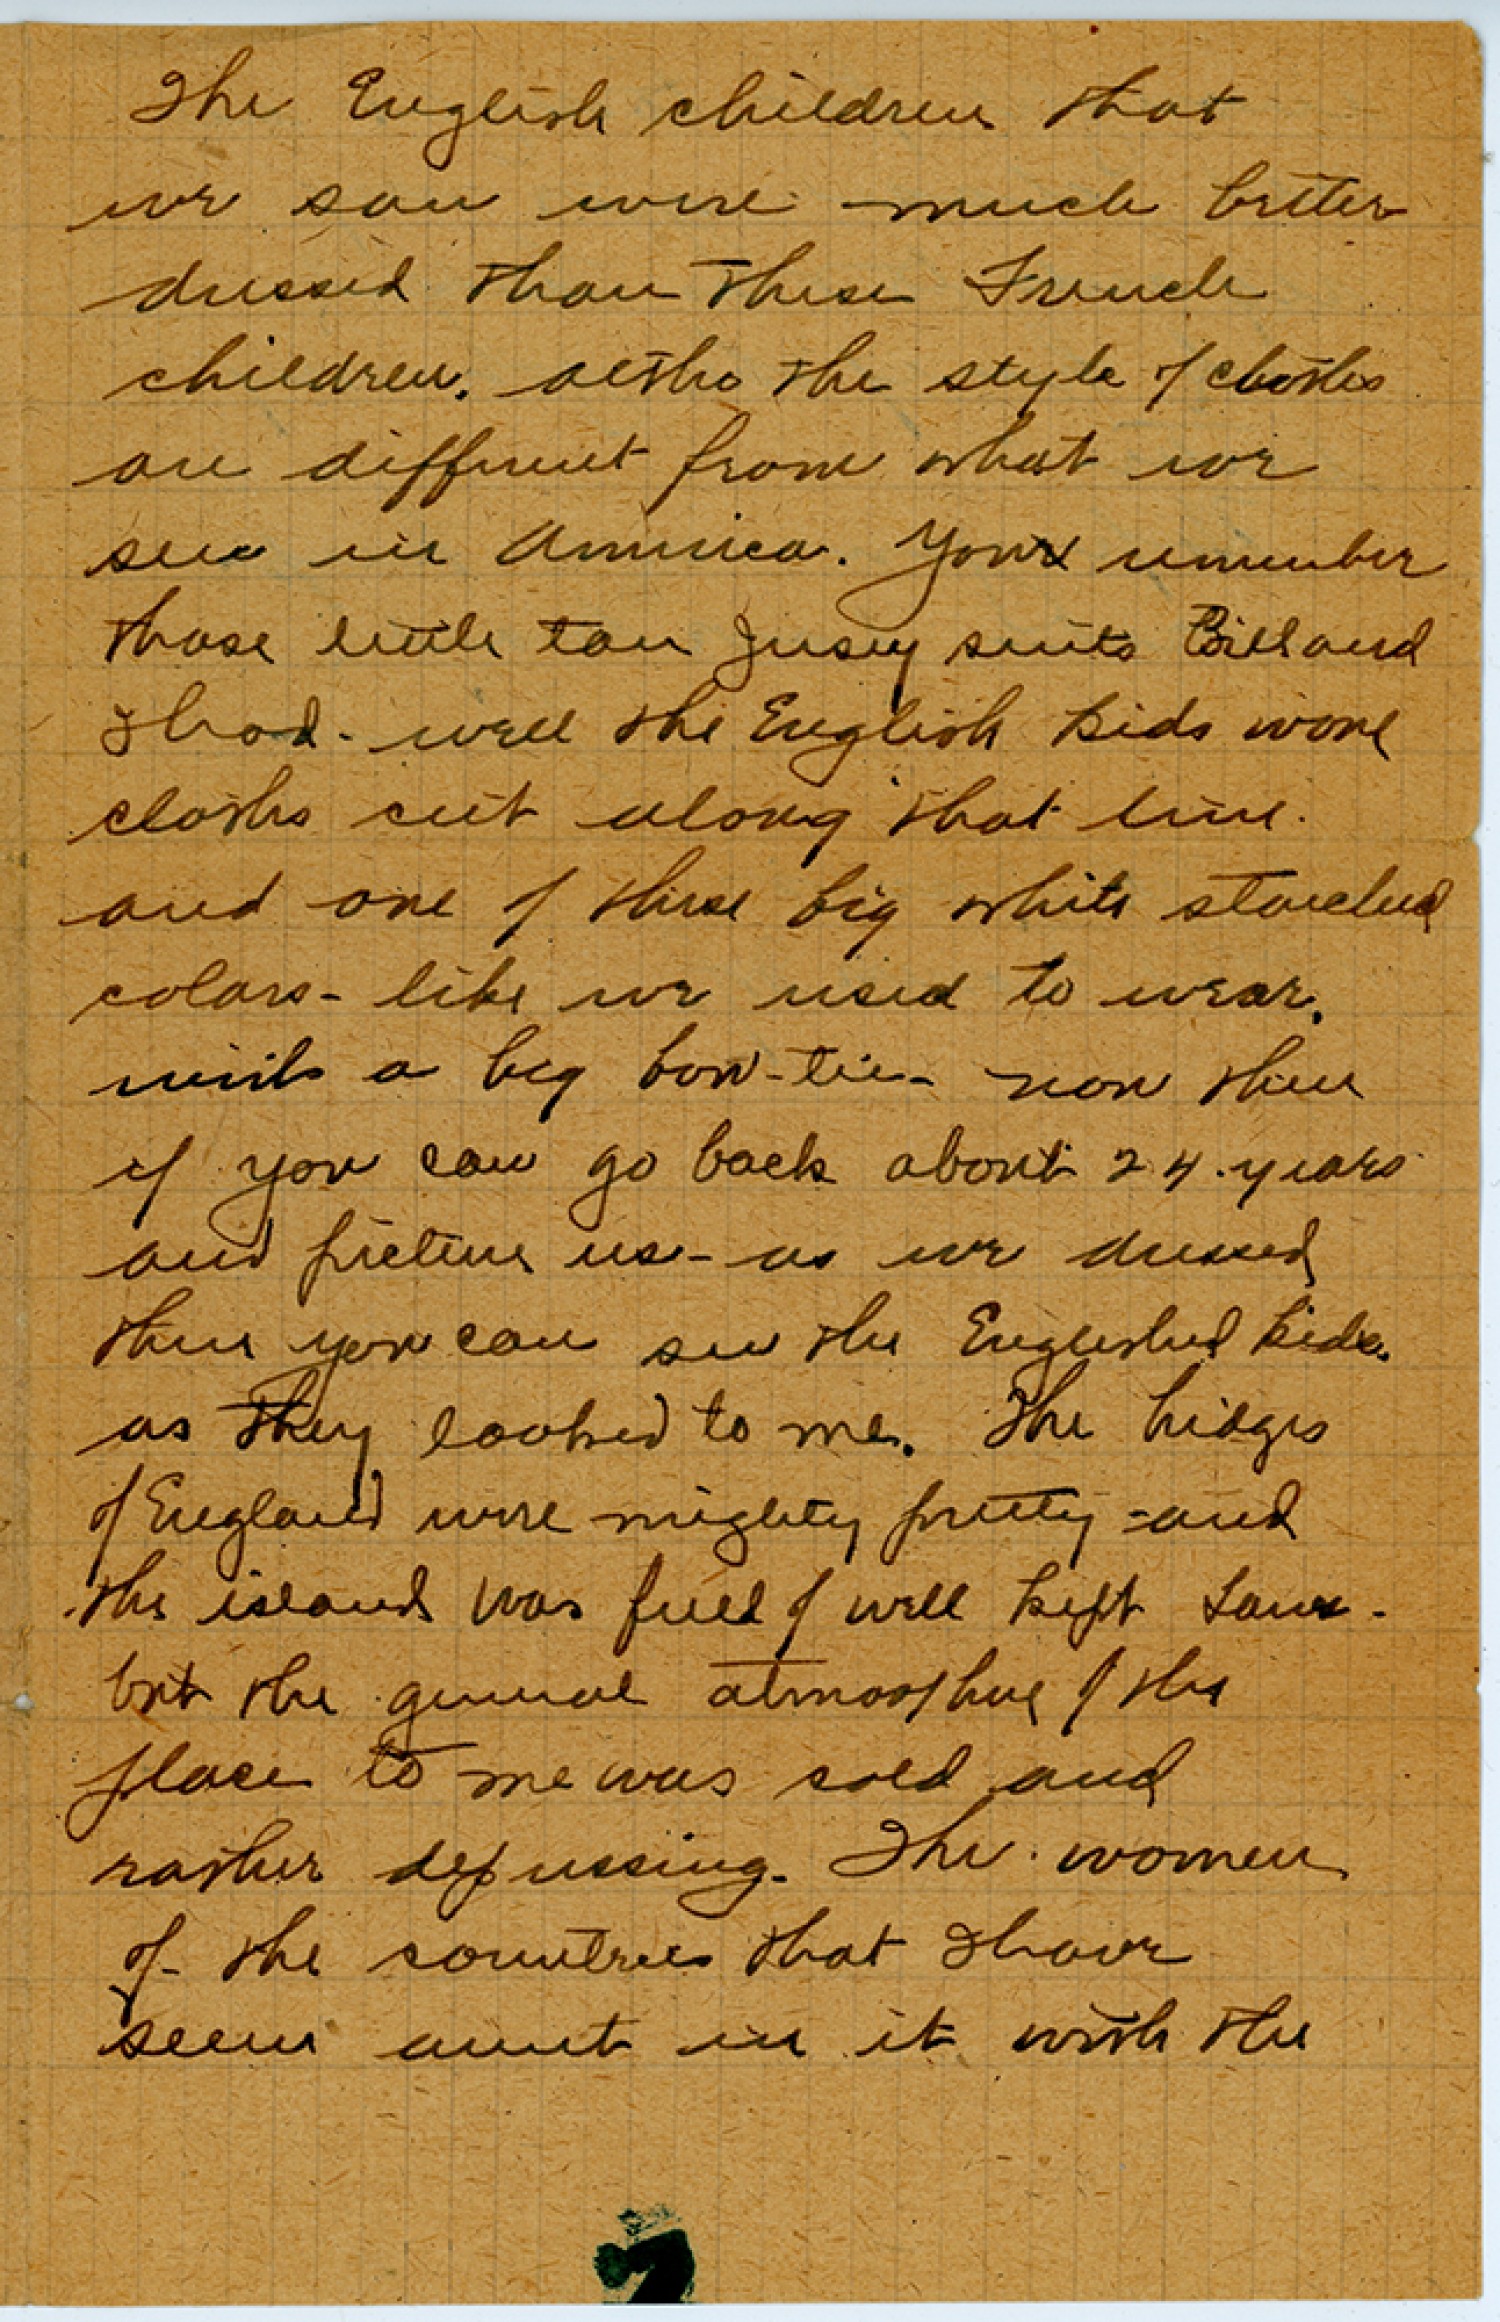 The English children that
we saw were much better
dressed than these French
children. altho the style of clothes
are different from what we
see in America. You remember
those little tan Jersey suits Bill and
I had - well the English kids wore
cloths cut along that line.
and one of these big white starched
colars - like we used to wear.
with a big bow-tie - now then
if you can go back about 24 years
and picture us - as we dressed
then you can see the Englished kids.
as they looked to me. The hedges
of England were mighty pretty - and
the island was full of well kept
but the general atmosphere of the
place to me was cold and
rather depressing. The women
of the countries that I have
seen arent in it with the